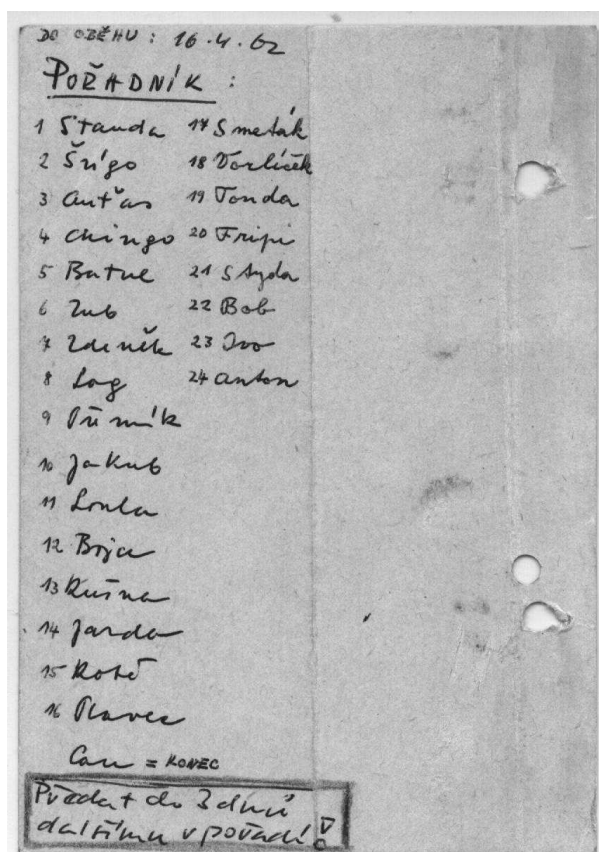 DO OBĚHU: 16.4.62
POŘADNÍK:
1 Standa
2 Šrígo
3 Anťas
4 Chingo
5 Batul
6 Zub
7 Zdeněk
8 Log
9
10 Jakub
11 Lonla
12 Boja
13 Kušna
14 Jarda
15 Robě
16 Plavec
17 Smeták
18 Vorlíček
19 Tonda
20 Fripi
21 Styda
22 Bob
23 Ivo
24 Anton
= KONEC
Předat do 3 dnů
dalšímu v pořadí!